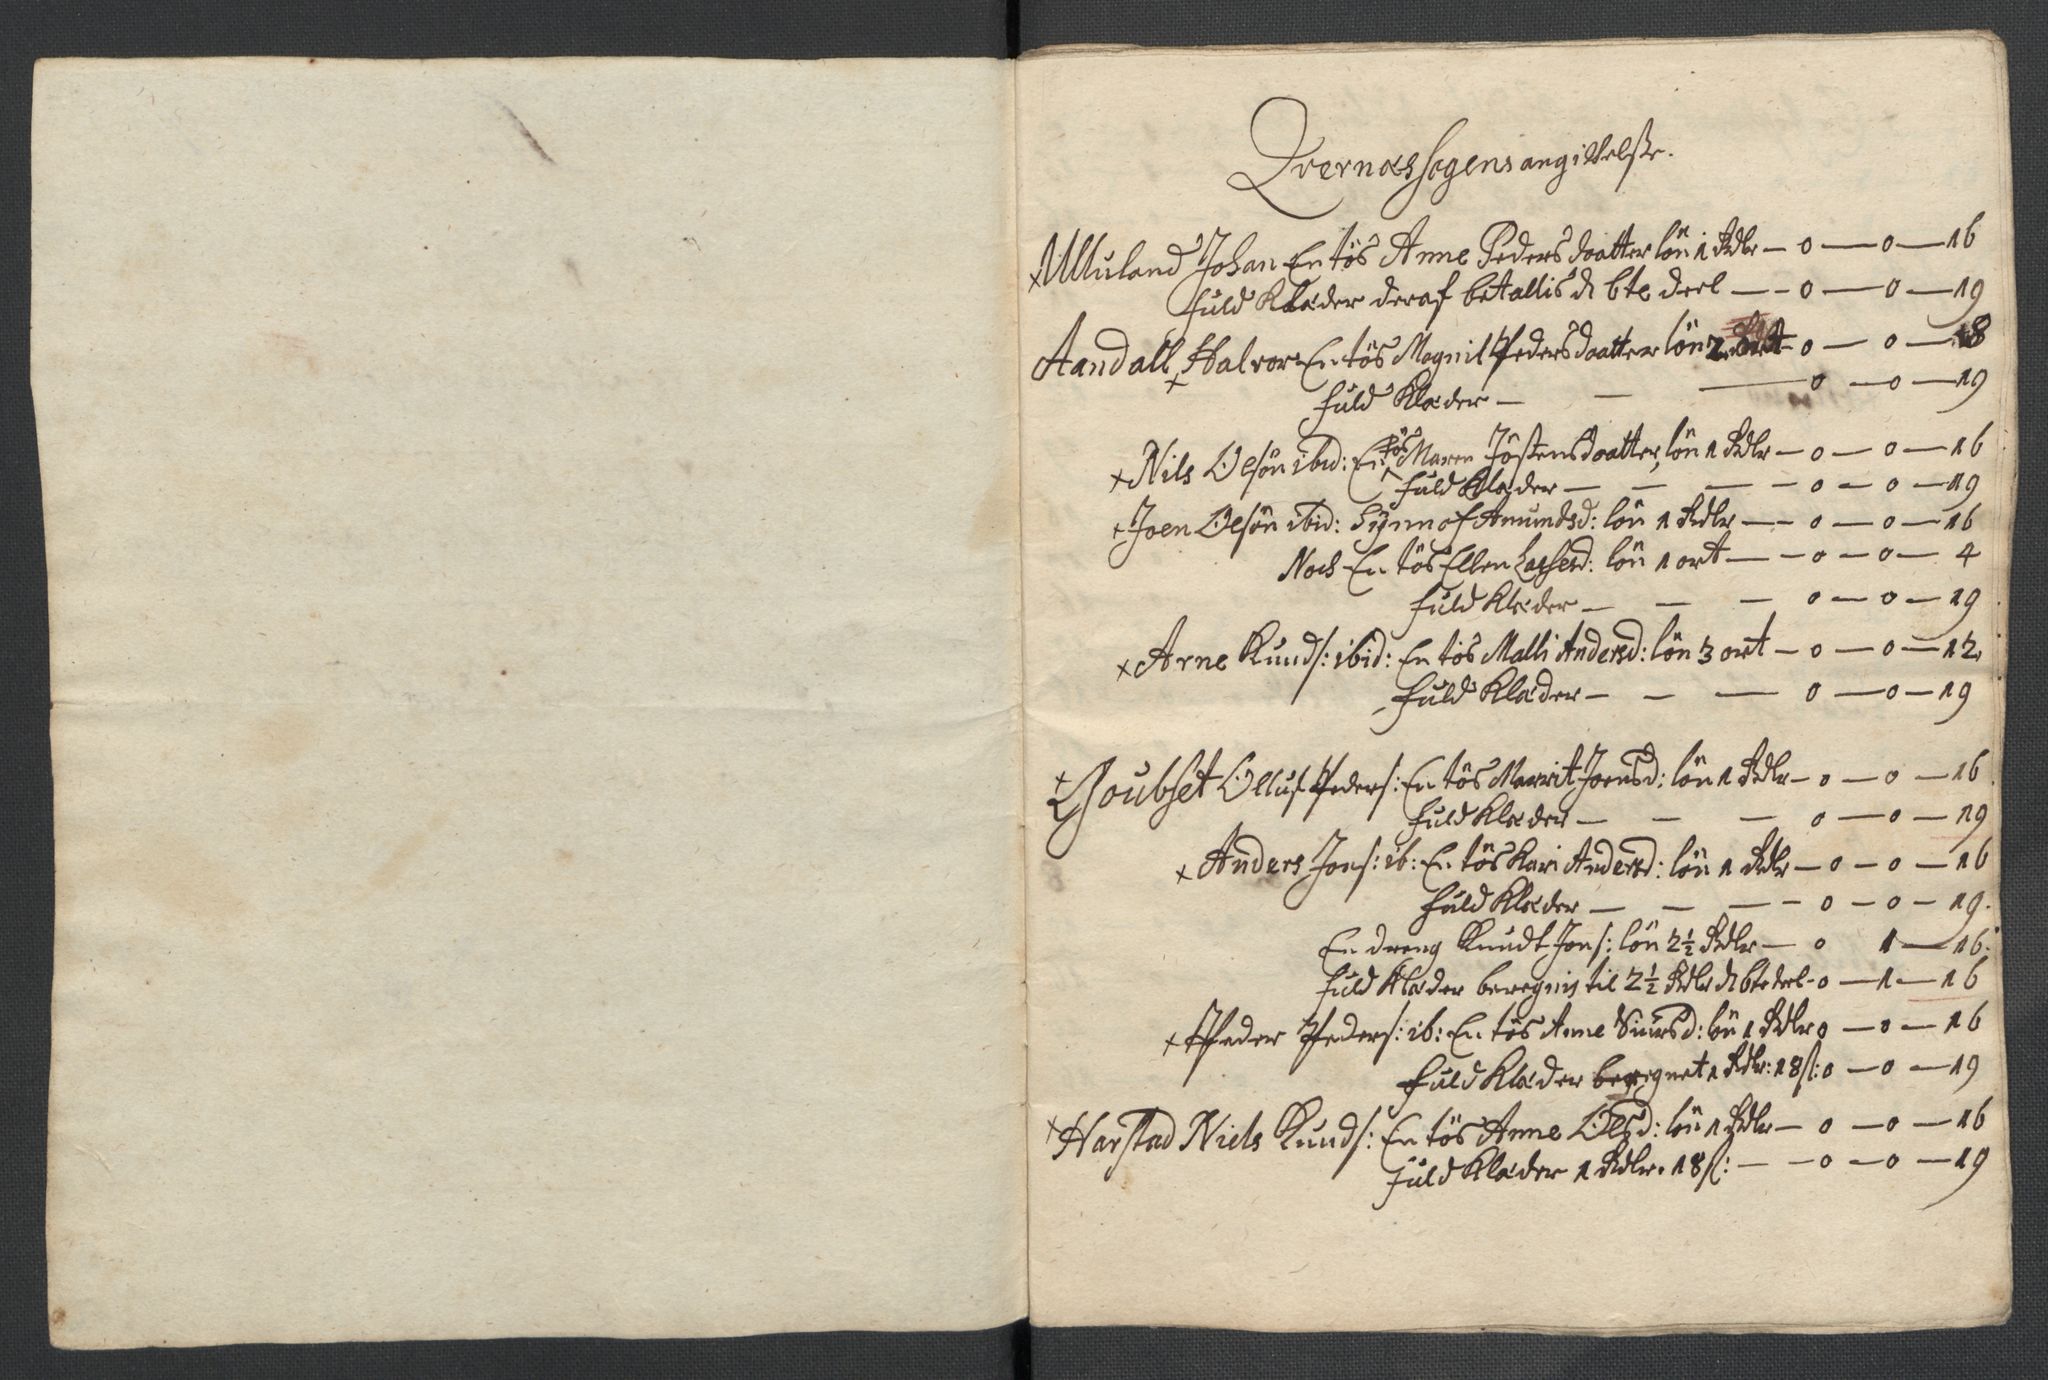 Qvernæs sogens angifvelsze.
× Ulluland Johan En tös Anne Peders daatter lön 1 Rdlr — 0 — 0 — 16
fuld Klæder deraf betallis d 6te deel — 0 — 0 — 19
Aandall × Halvor En tös Magnil Peders daatter lön 2 ort — 0 — 0 — 8
fuld Klæder — 0 — 0 — 19
× Nils Olsön ibid: En tös Maren Jöstens daatter, lön 1 Rdlr — 0 — 0 — 16
fuld Klæder — 0 — 0 — 19
× Joen Olsön ibid: Synnof Amundsd: lön 1 Rdlr — 0 — 0 — 16
Noch En tös Ellen lön 1 ort — 0 — 0 — 4
fuld Klæder — 0 — 0 — 19
× Arne Knuds: ibid: En tös Malli Andersd: lön 3 ort — 0 — 0 — 12
fuld Klæder — 0 — 0 — 19
× Goubset Olluf Peders: En tös Marrit Joensd: lön 1 Rdlr — 0 — 0 — 16
fuld Klæder — 0 — 0 — 19
× Anders Jons: ib: En tös Kari Andersd: lön 1 Rdlr — 0 — 0 — 16
fuld Klæder — 0 — 0 — 19.
En dreng Knudt Jons: lön 2½ Rdlr — 0 1 — 16.
fuld Klæder beregnis til 2½ Rdlr d 6te deel - 0 — 1 — 16
× Peder Peders: ib: En tös Anne Siursd: lön 1 Rdlr 0 — 0 — 16
fuld Klæder beregnet 1 Rdlr: 18 s: 0 — 0 — 19
× Harstad Niels Knuds: En tös Anne Olsd: lön 1 Rdlr — 0 — 0 — 16
fuld Klæder 1 Rdlr. 18 s: — 0 — 0 — 19